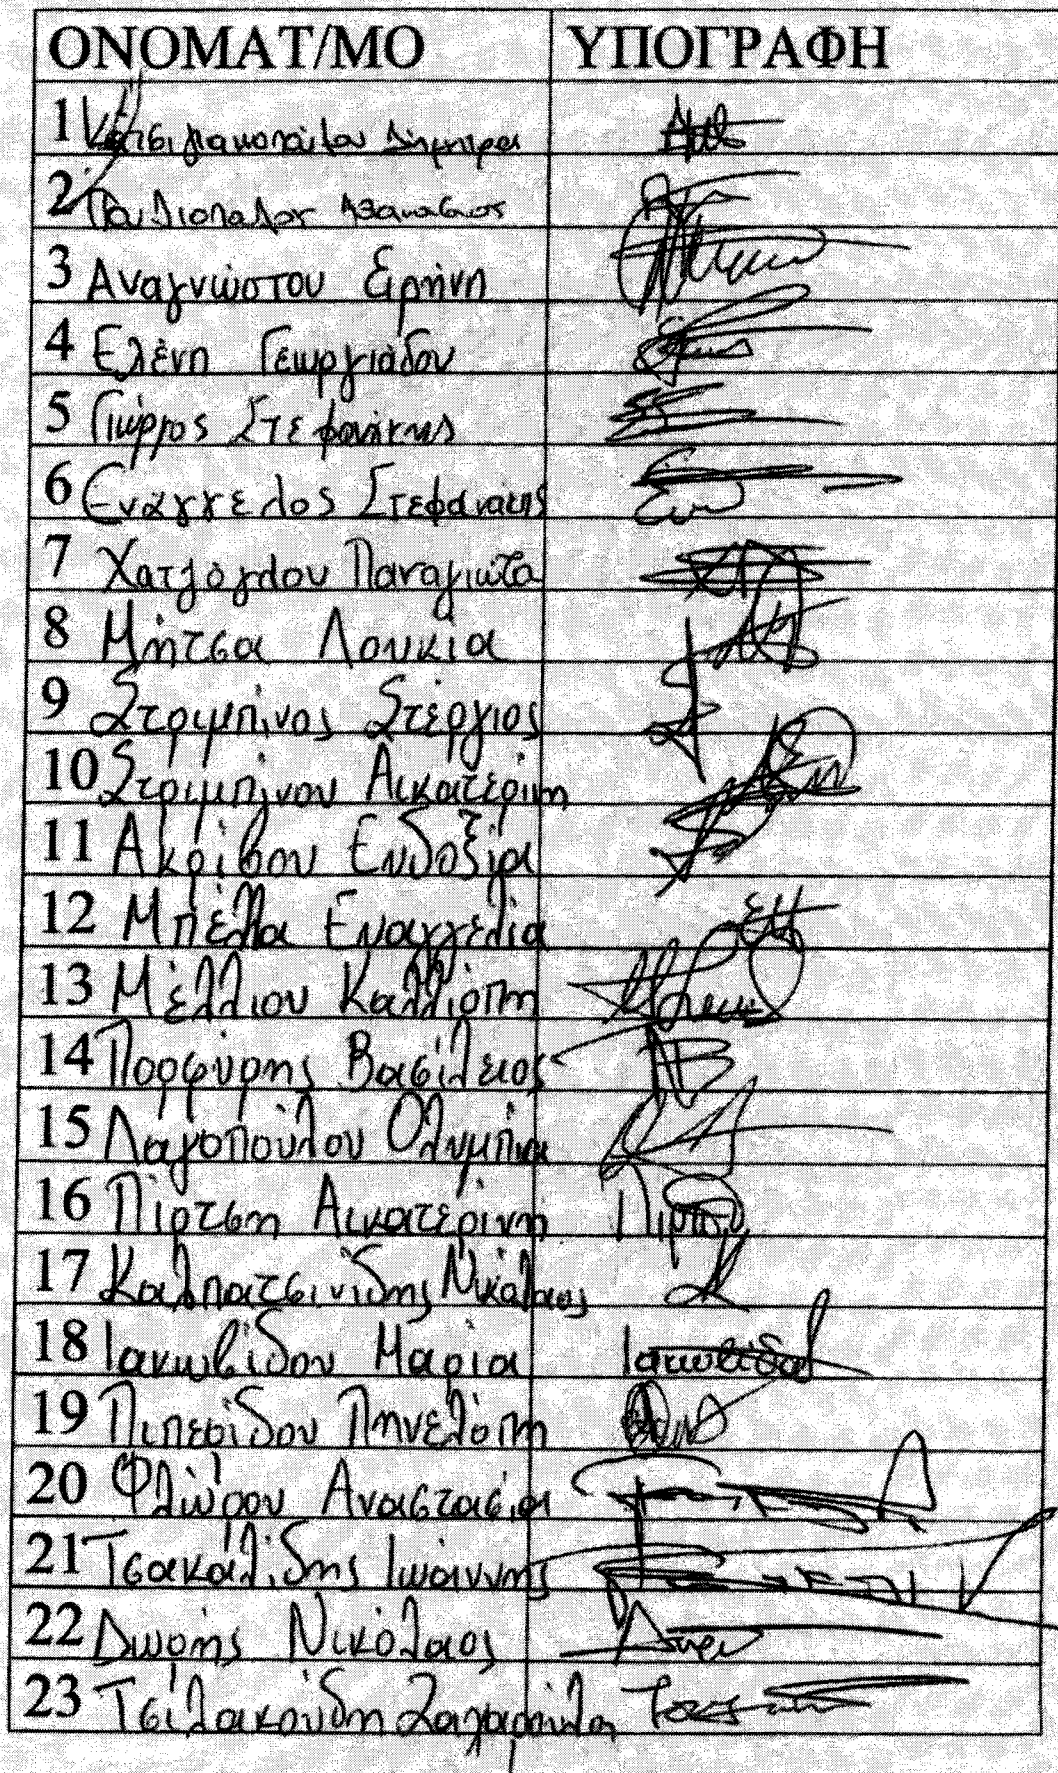 ΟΝΟΜΑΤ/ΜΟ ΥΠΟΓΡΑΦΗ
1 Δήμητρα
2 Αθανάσιος
3 Αναγνώστου Ειρήνη
4 Ελένη Γεωργιάδου
5 Γιώργος Στεφανάκης
6 Ευάγγελος Στεφανάκης
7 Χατζόγλου Παναγιώτα
8 Μήτσα Λουκία
9 Στριμπίνος Στέργιος
10 Στριμπίνου Αικατερίνη
11 Ακρίβου Ευδοξία
12 Μπέλλα Ευαγγελία
13 Μέλλιου Καλλιόπη
14 Πορφύρης Βασίλειος
15 Λαγοπούλου Ολυμπία
16 Πίρτση Αικατερίνη
17 Καλπατσινίδης Νικόλαος
18 Ιακωβίδου Μαρία Ιακωβίδου
19 Πιπερίδου Πηνελόπη
20 Φλώρου Αναστασία
21 Τσακαλίδης Ιωάννης
22 Νικόλαος
23 Τσιλακούδη